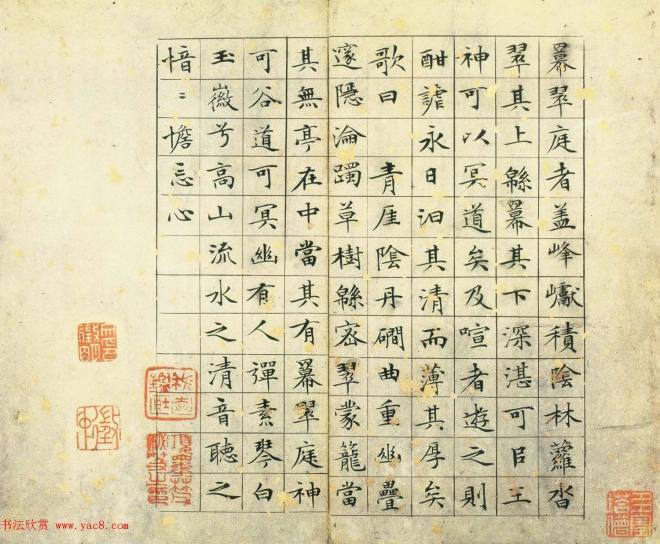 羃翠庭者盖峰巘積陰林蘿沓
翠其上緜羃其下深湛可㠯王
神可以冥道矣及喧者遊之則
酣謔永日汩其清而薄其厚矣
歌曰 青厓陰丹磵曲重幽疊
邃隱淪躅草樹緜宻翠蒙籠當
其無亭在中當其有羃翠庭神
可谷道可冥幽有人彈素琴白
玉徽兮高山流水之清音聽之
愔〻憺忘心
书法欣赏 www.yac8.com